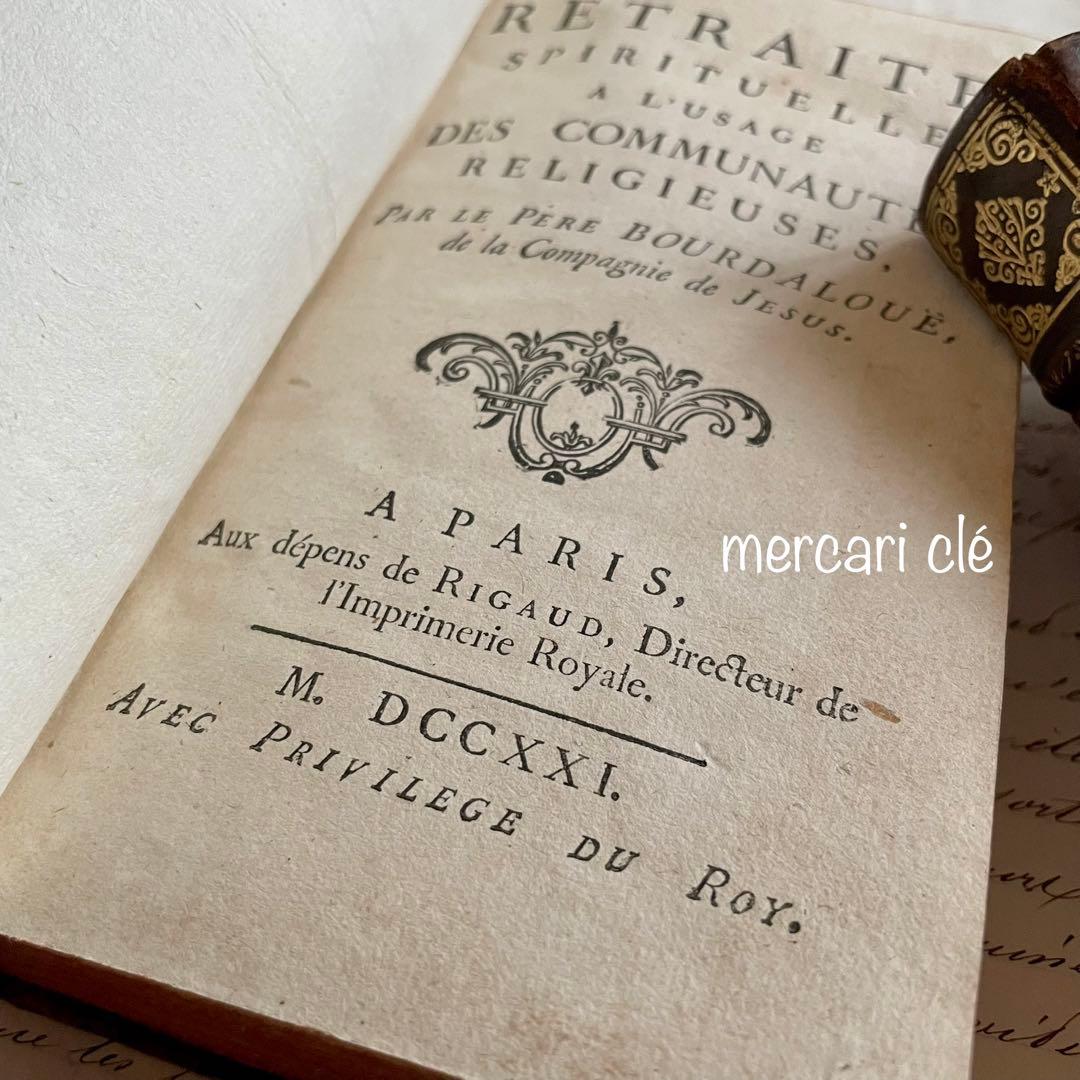 RETRAITE
SPIRITUELLE
A L'USAGE
DES COMMUNAUTE
RELIGIEUSES,
PAR LE PÈRE BOURDALOUË,
de la Compagnie de JESUS.
A PARIS,
Aux dépens de RIGAUD, Directeur de
l'Imprimerie Royale.
M. DCCXXI.
AVEC PRIVILEGE DU ROY.
mercari clé